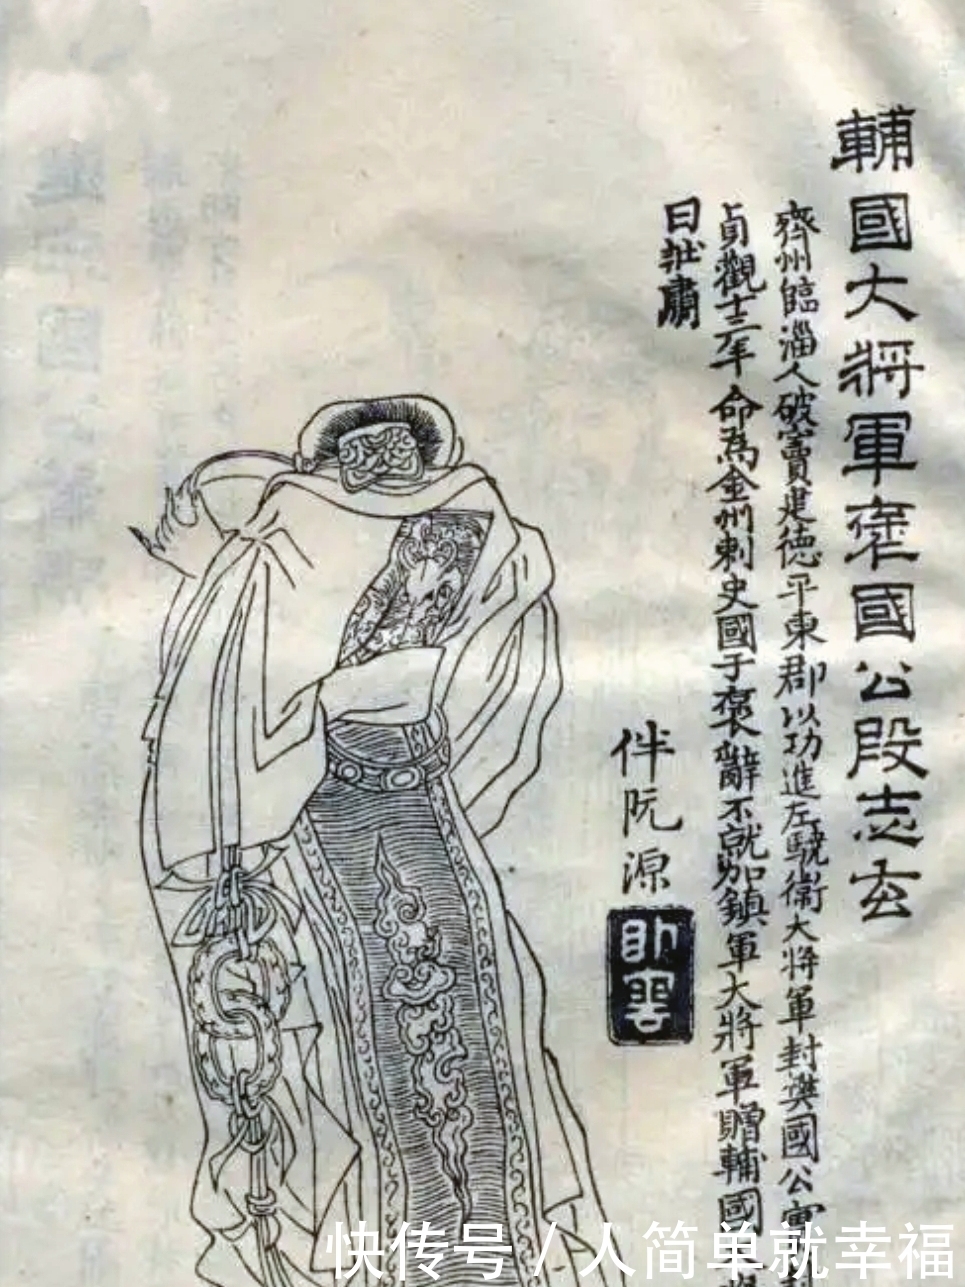 輔國大將軍褒國公段志玄
齊州臨淄人破竇建德平東郡以功進左驍衛大將軍封樊國公實
貞觀十二年命為金州刺史國于褒辭不就加鎮軍大將軍贈輔國
曰壯肅
伴阮源
臥雲
快传号/人简单就幸福